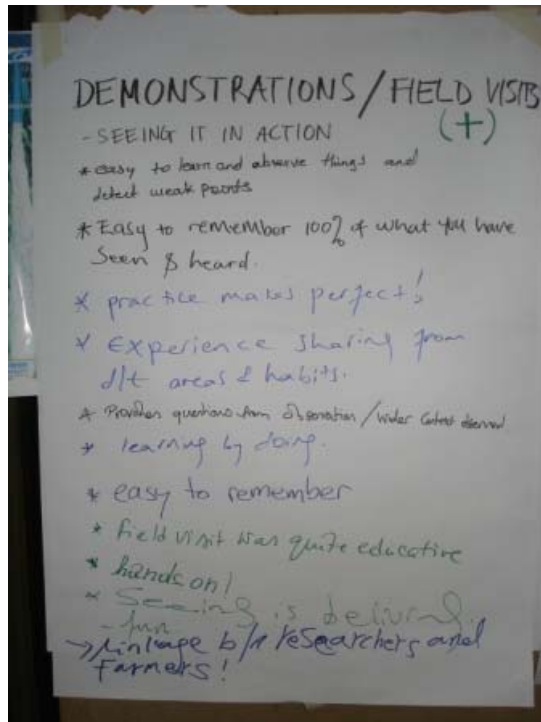 DEMONSTRATIONS/FIELD VISITS
(+)
- SEEING IT IN ACTION
* easy to learn and observe things and
detect weak points
* Easy to remember 100% of what you have
Seen & heard.
* practice makes perfect!
* Experience sharing from
d/t areas & habits.
* Provides questions from observation / Wider Context observed
* learning by doing.
* easy to remember
* field visit was quite educative
* hands on!
* Seeing is beliving.
- fun
→ Linkage b/n researchers and
Farmers!